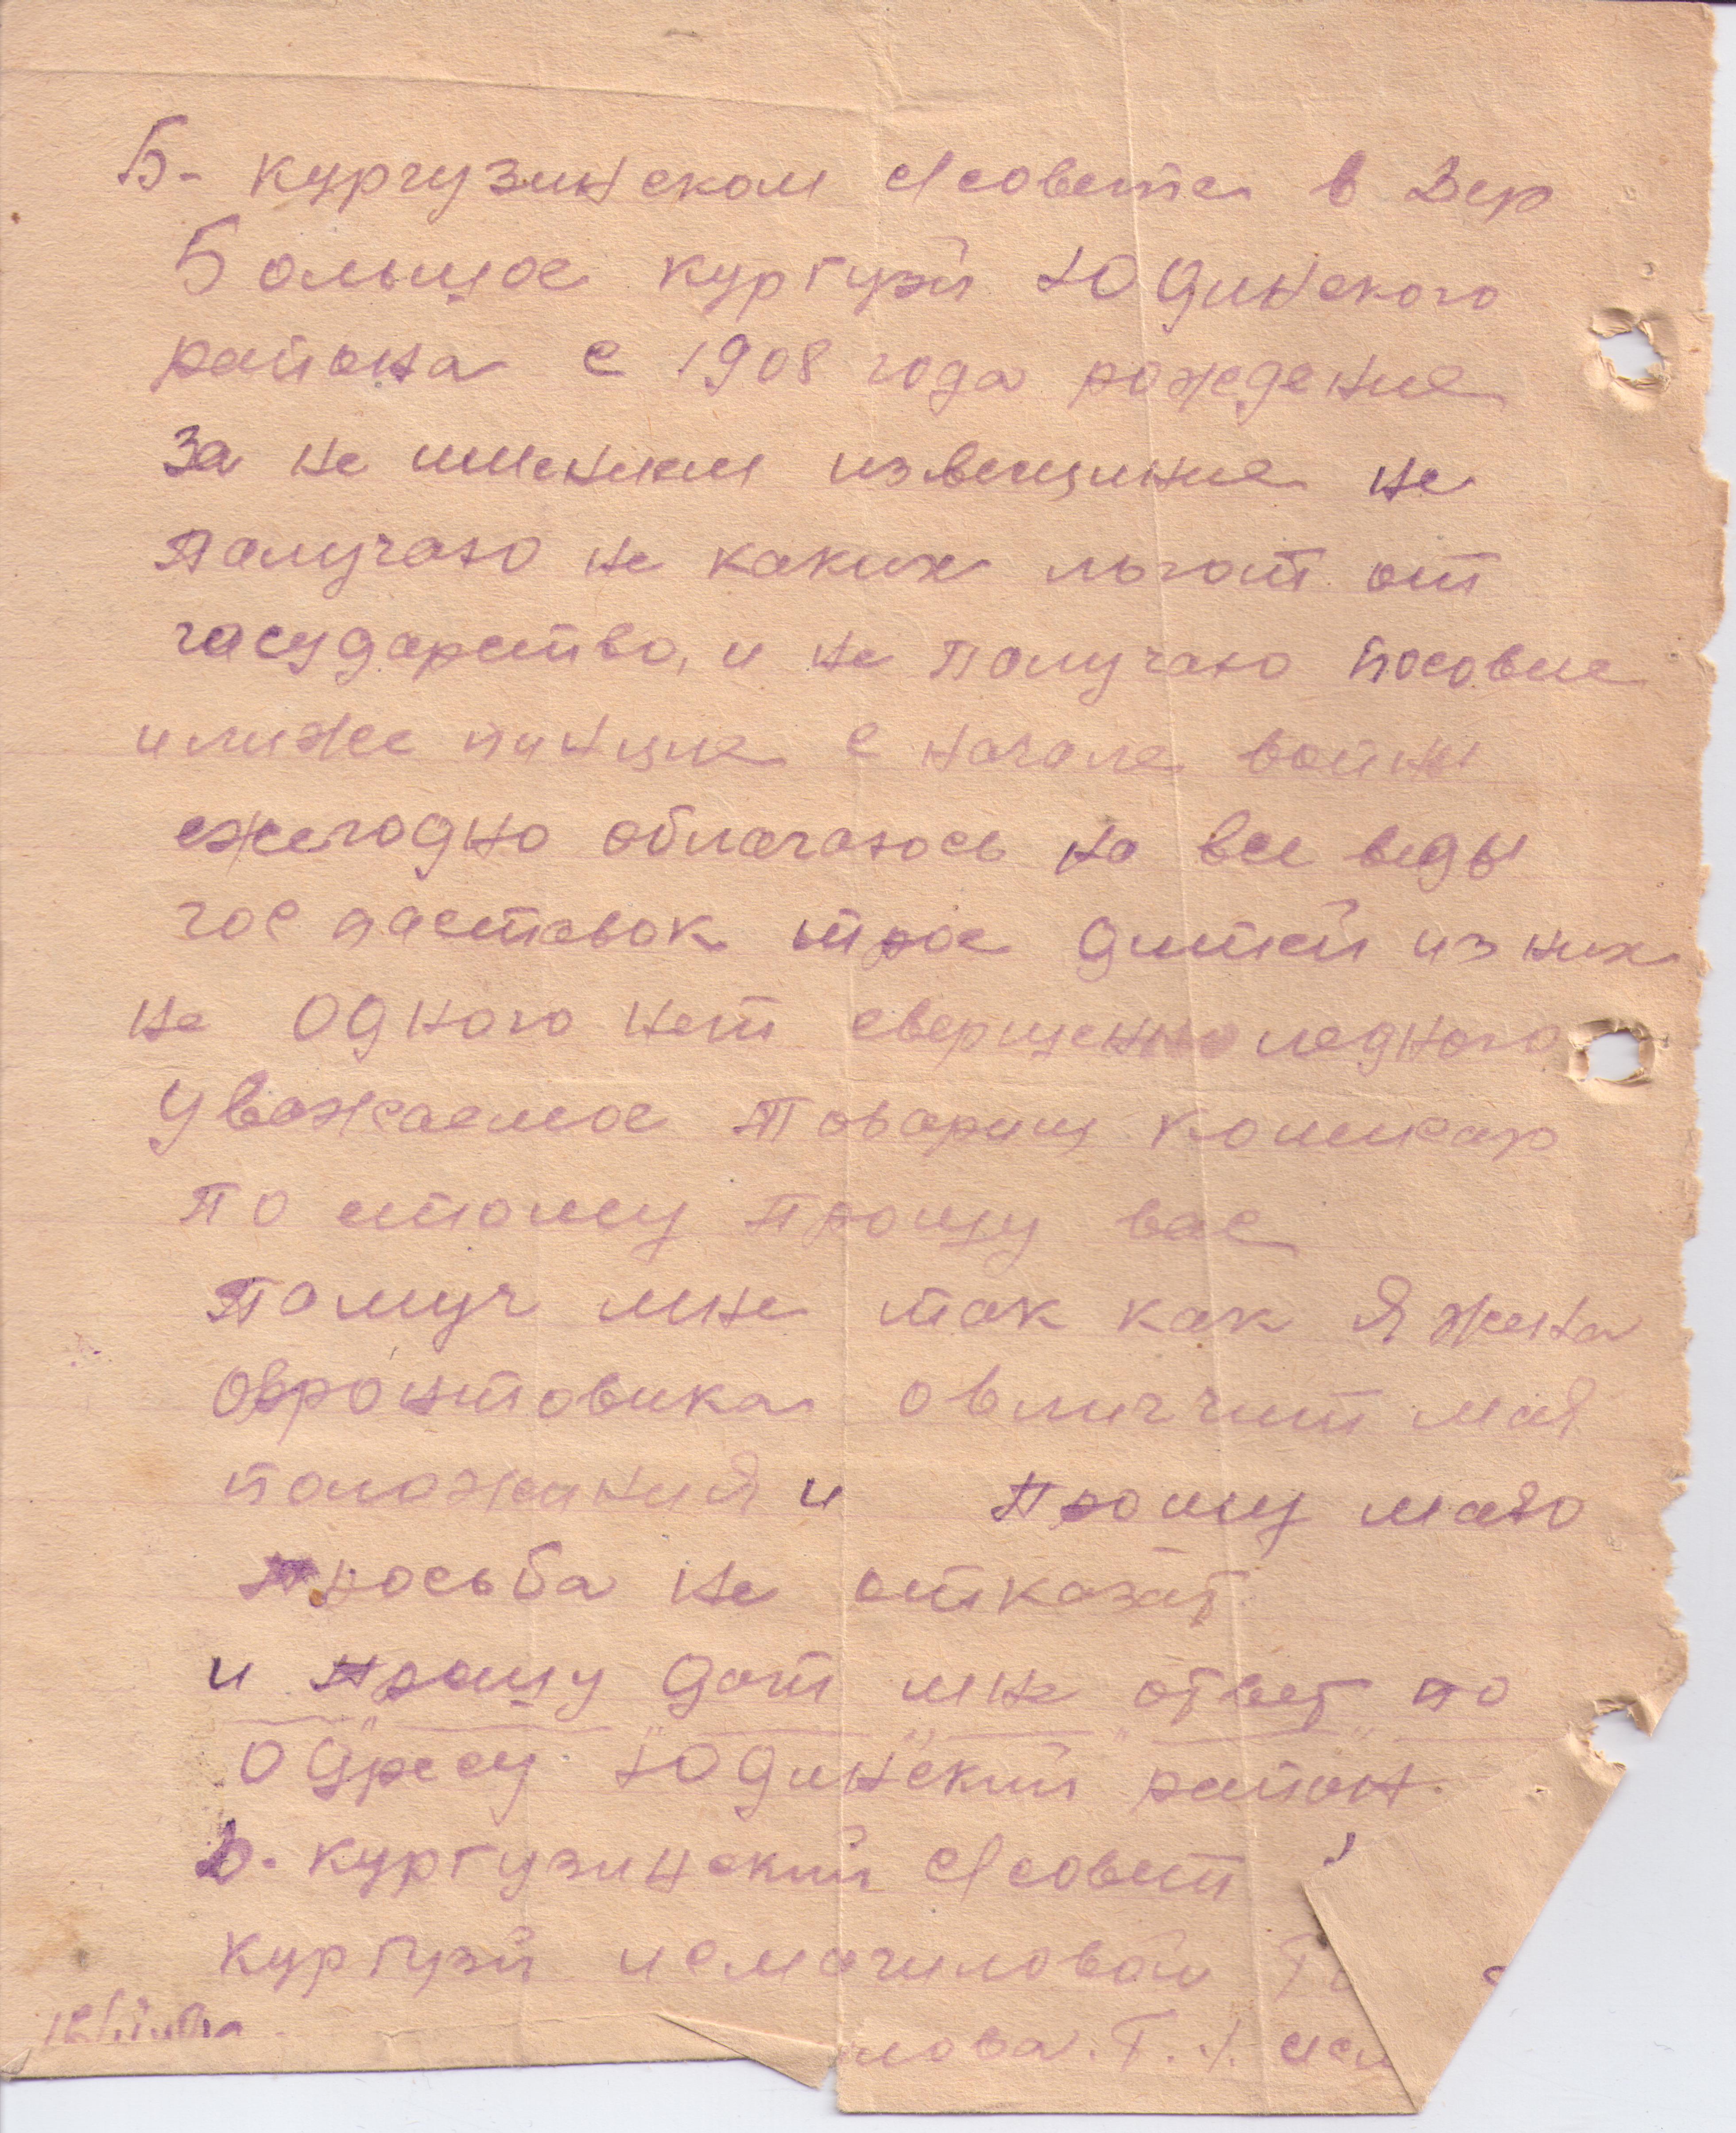 Б- кургузинском с/совете в Дер
Большое кургузи Юдинского
района с 1908 года рождение
За не имением извещиние не
палучаю не каких льгот от
государство, и не палучаю посовие
илиже пинцие с начале войны
ежегодно облагаюсь на все виды
гос паставок трое дитей из них
не одного нет свершенноледного
Уважаемое товарищ комисар
по етому прошу вас
памуч мне так как я жена
фронтовика овличит мая
положания и прошу маю
просьба не отказат
и прошу дат мне ответ по
одресу Юдинский район
Б. кургузинский с/совет
кургузи исмагиловой Г
лова. Г. И. исм